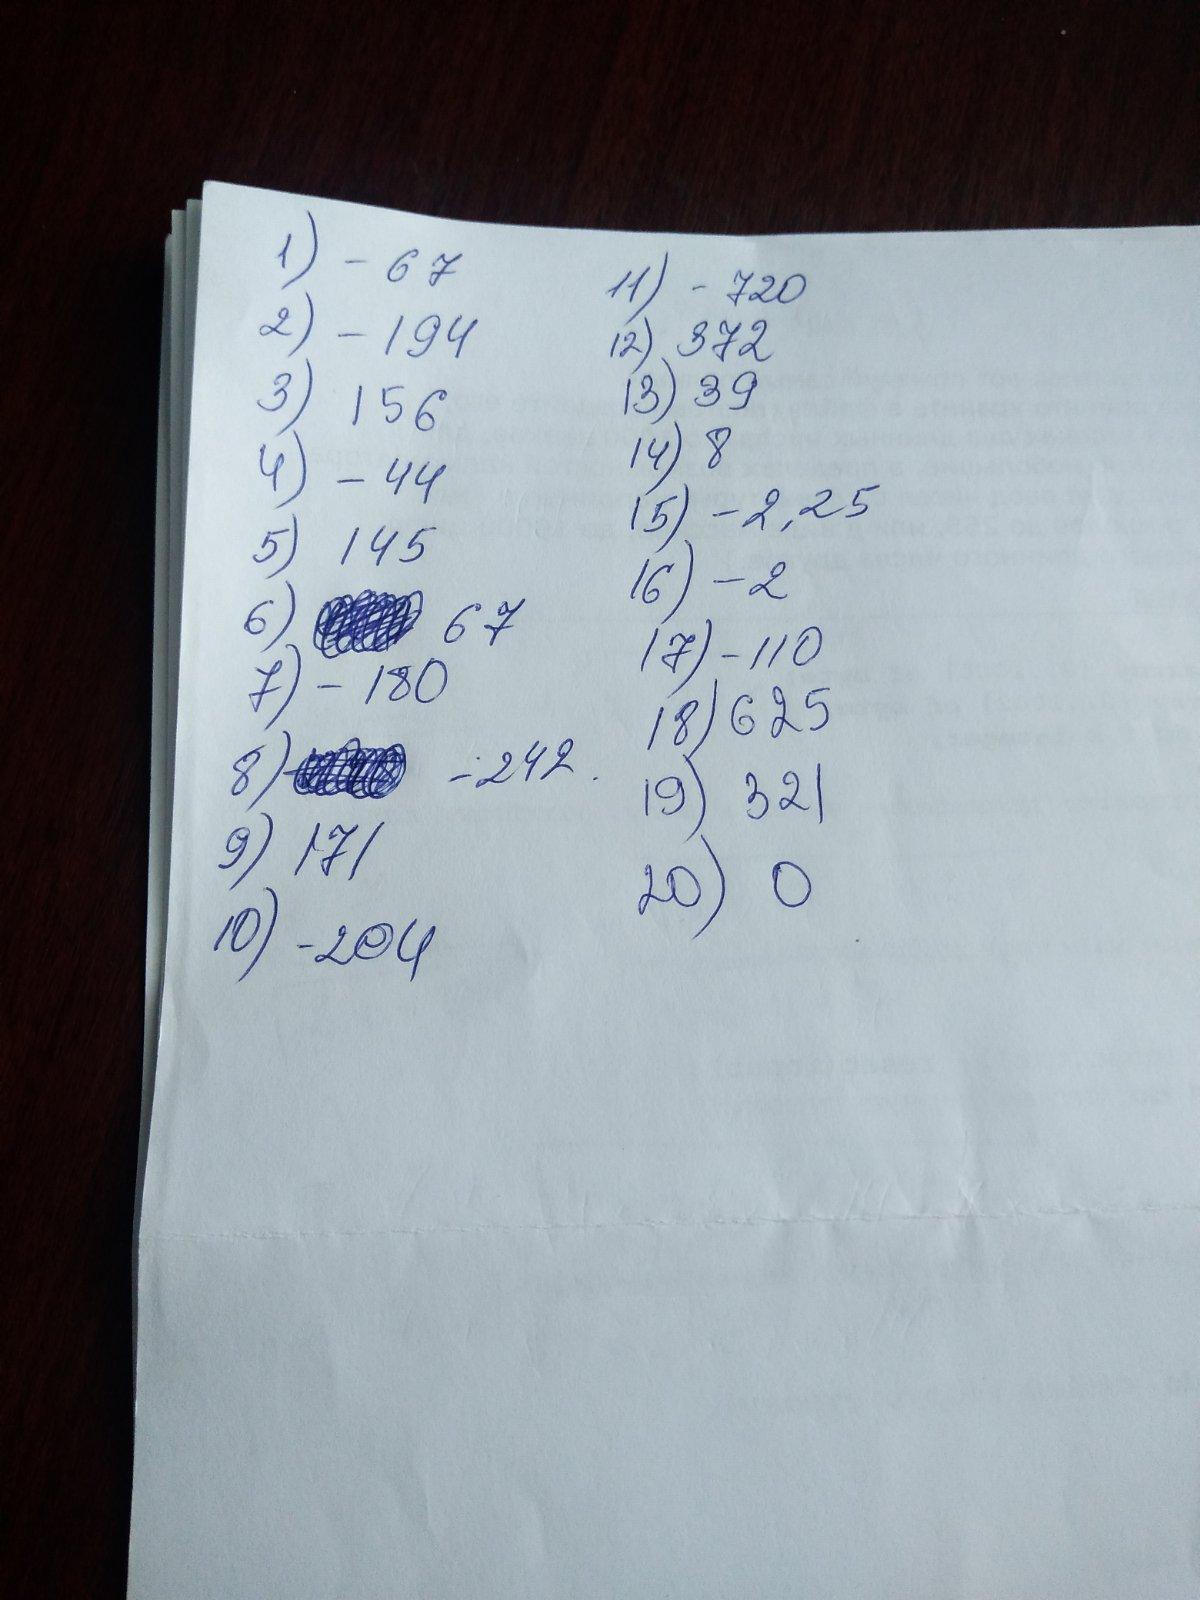 1) -67
2) -194
3) 156
4) -44
5) 145
6) 67
7) -180
8) -242.
9) 171
10) -204
11) -720
12) 372
13) 39
14) 8
15) -2,25
16) -2
17) -110
18) 625
19) 321
20) 0